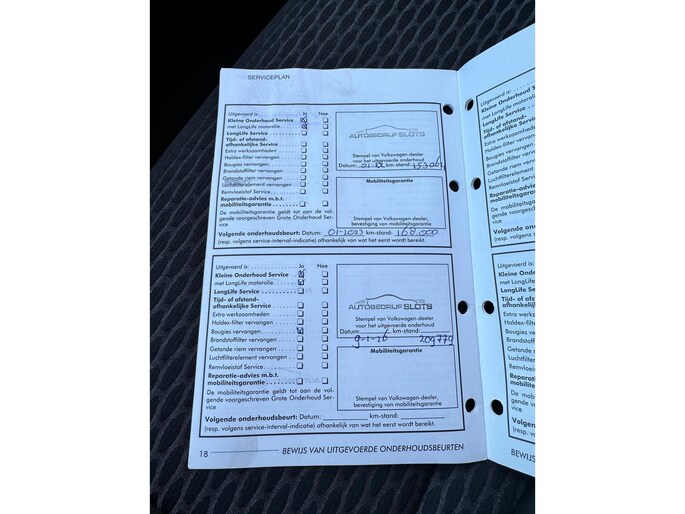 SERVICEPLAN
Uitgevoerd is: Ja Nee
Kleine Onderhoud Service
met LongLife motorolie
LongLife Service
Tijd- of afstand-
afhankelijke Service
Extra werkzaamheden
Haldex-filter vervangen
Bougies vervangen
Brandstoffilter vervangen
Getande riem vervangen
Luchtfilterelement vervangen
Remvloeistof Service
Reparatie-advies m.b.t.
mobiliteitsgarantie
De mobiliteitsgarantie geldt tot aan de vol-
gende voorgeschreven Grote Onderhoud Ser-
vice
AUTOBEDRIJF SLOTS
Stempel van Volkswagen-dealer
voor het uitgevoerde onderhoud
Datum: km-stand:
Mobiliteitsgarantie
Stempel van Volkswagen-dealer,
bevestiging van mobiliteitsgarantie
Volgende onderhoudsbeurt: Datum: 01-2023 km-stand: 168.000
(resp. volgens service-interval-indicatie) afhankelijk van wat het eerst wordt bereikt.
Uitgevoerd is: Ja Nee
Kleine Onderhoud Service
met LongLife motorolie
LongLife Service
Tijd- of afstand-
afhankelijke Service
Extra werkzaamheden
Haldex-filter vervangen
Bougies vervangen
Brandstoffilter vervangen
Getande riem vervangen
Luchtfilterelement vervangen
Remvloeistof Service
Reparatie-advies m.b.t.
mobiliteitsgarantie
De mobiliteitsgarantie geldt tot aan de vol-
gende voorgeschreven Grote Onderhoud Ser-
vice
AUTOBEDRIJF SLOTS
Stempel van Volkswagen-dealer
voor het uitgevoerde onderhoud
Datum: km-stand:
9-1-26 209779
Mobiliteitsgarantie
Stempel van Volkswagen-dealer,
bevestiging van mobiliteitsgarantie
Volgende onderhoudsbeurt: Datum: km-stand:
(resp. volgens service-interval-indicatie) afhankelijk van wat het eerst wordt bereikt.
18 BEWIJS VAN UITGEVOERDE ONDERHOUDSBEURTEN
Uitgevoerd is:
Kleine Onderhoud
met LongLife motorolie
LongLife Service
Tijd- of afstand-
afhankelijke Service
Extra werkzaamheden
Haldex-filter vervangen
Bougies vervangen
Brandstoffilter vervang
Getande riem vervan
Luchtfilterelement ver
Remvloeistof Service
Reparatie-advies m
mobiliteitsgarantie
De mobiliteitsgara
gende voorgeschre
vice
Volgende onde
(resp. volgens se
Uitgevoerd is:
Kleine Onde
met LongLife
LongLife Ser
Tijd- of afst
afhankelijk
Extra werkz
Haldex-filte
Bougies ve
Brandstof
Getande
Luchtfilte
Remvloe
Repara
mobilit
De mo
gende
vice
Volge
(resp.
BEWIJS